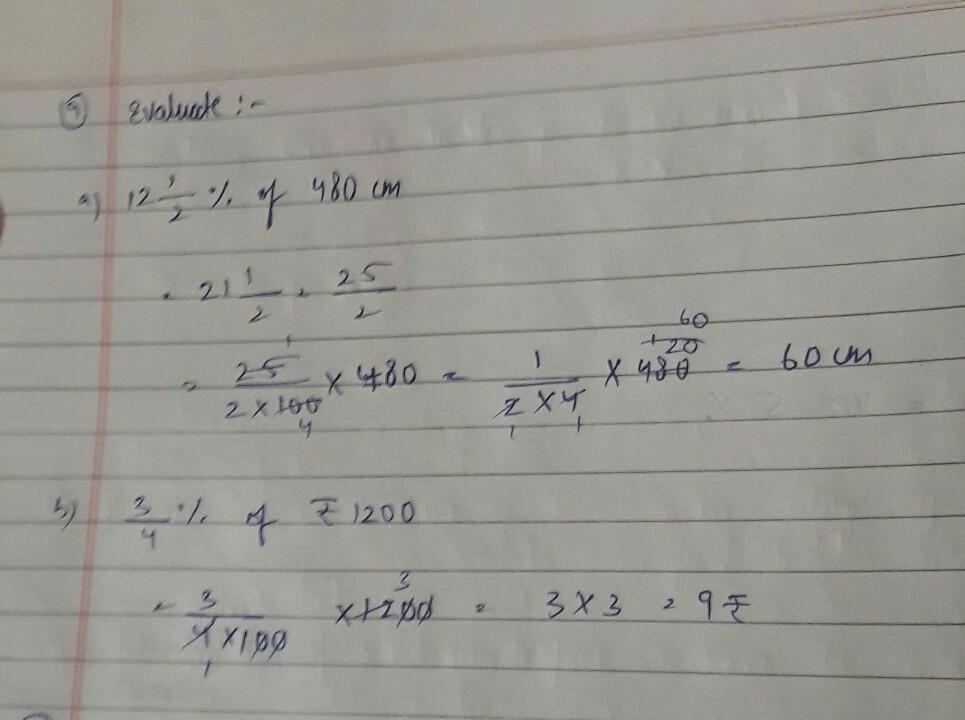 9 Evaluate :-
a) 12 1/2 % of 480 cm
= 21 1/2 = 25/2
= 25/(2 × 100) × 480 = 1/(2 × 4) × 480 = 60 cm
b) 3/4 % of ₹ 1200
= 3/(4 × 100) × 1200 = 3 × 3 = 9 ₹